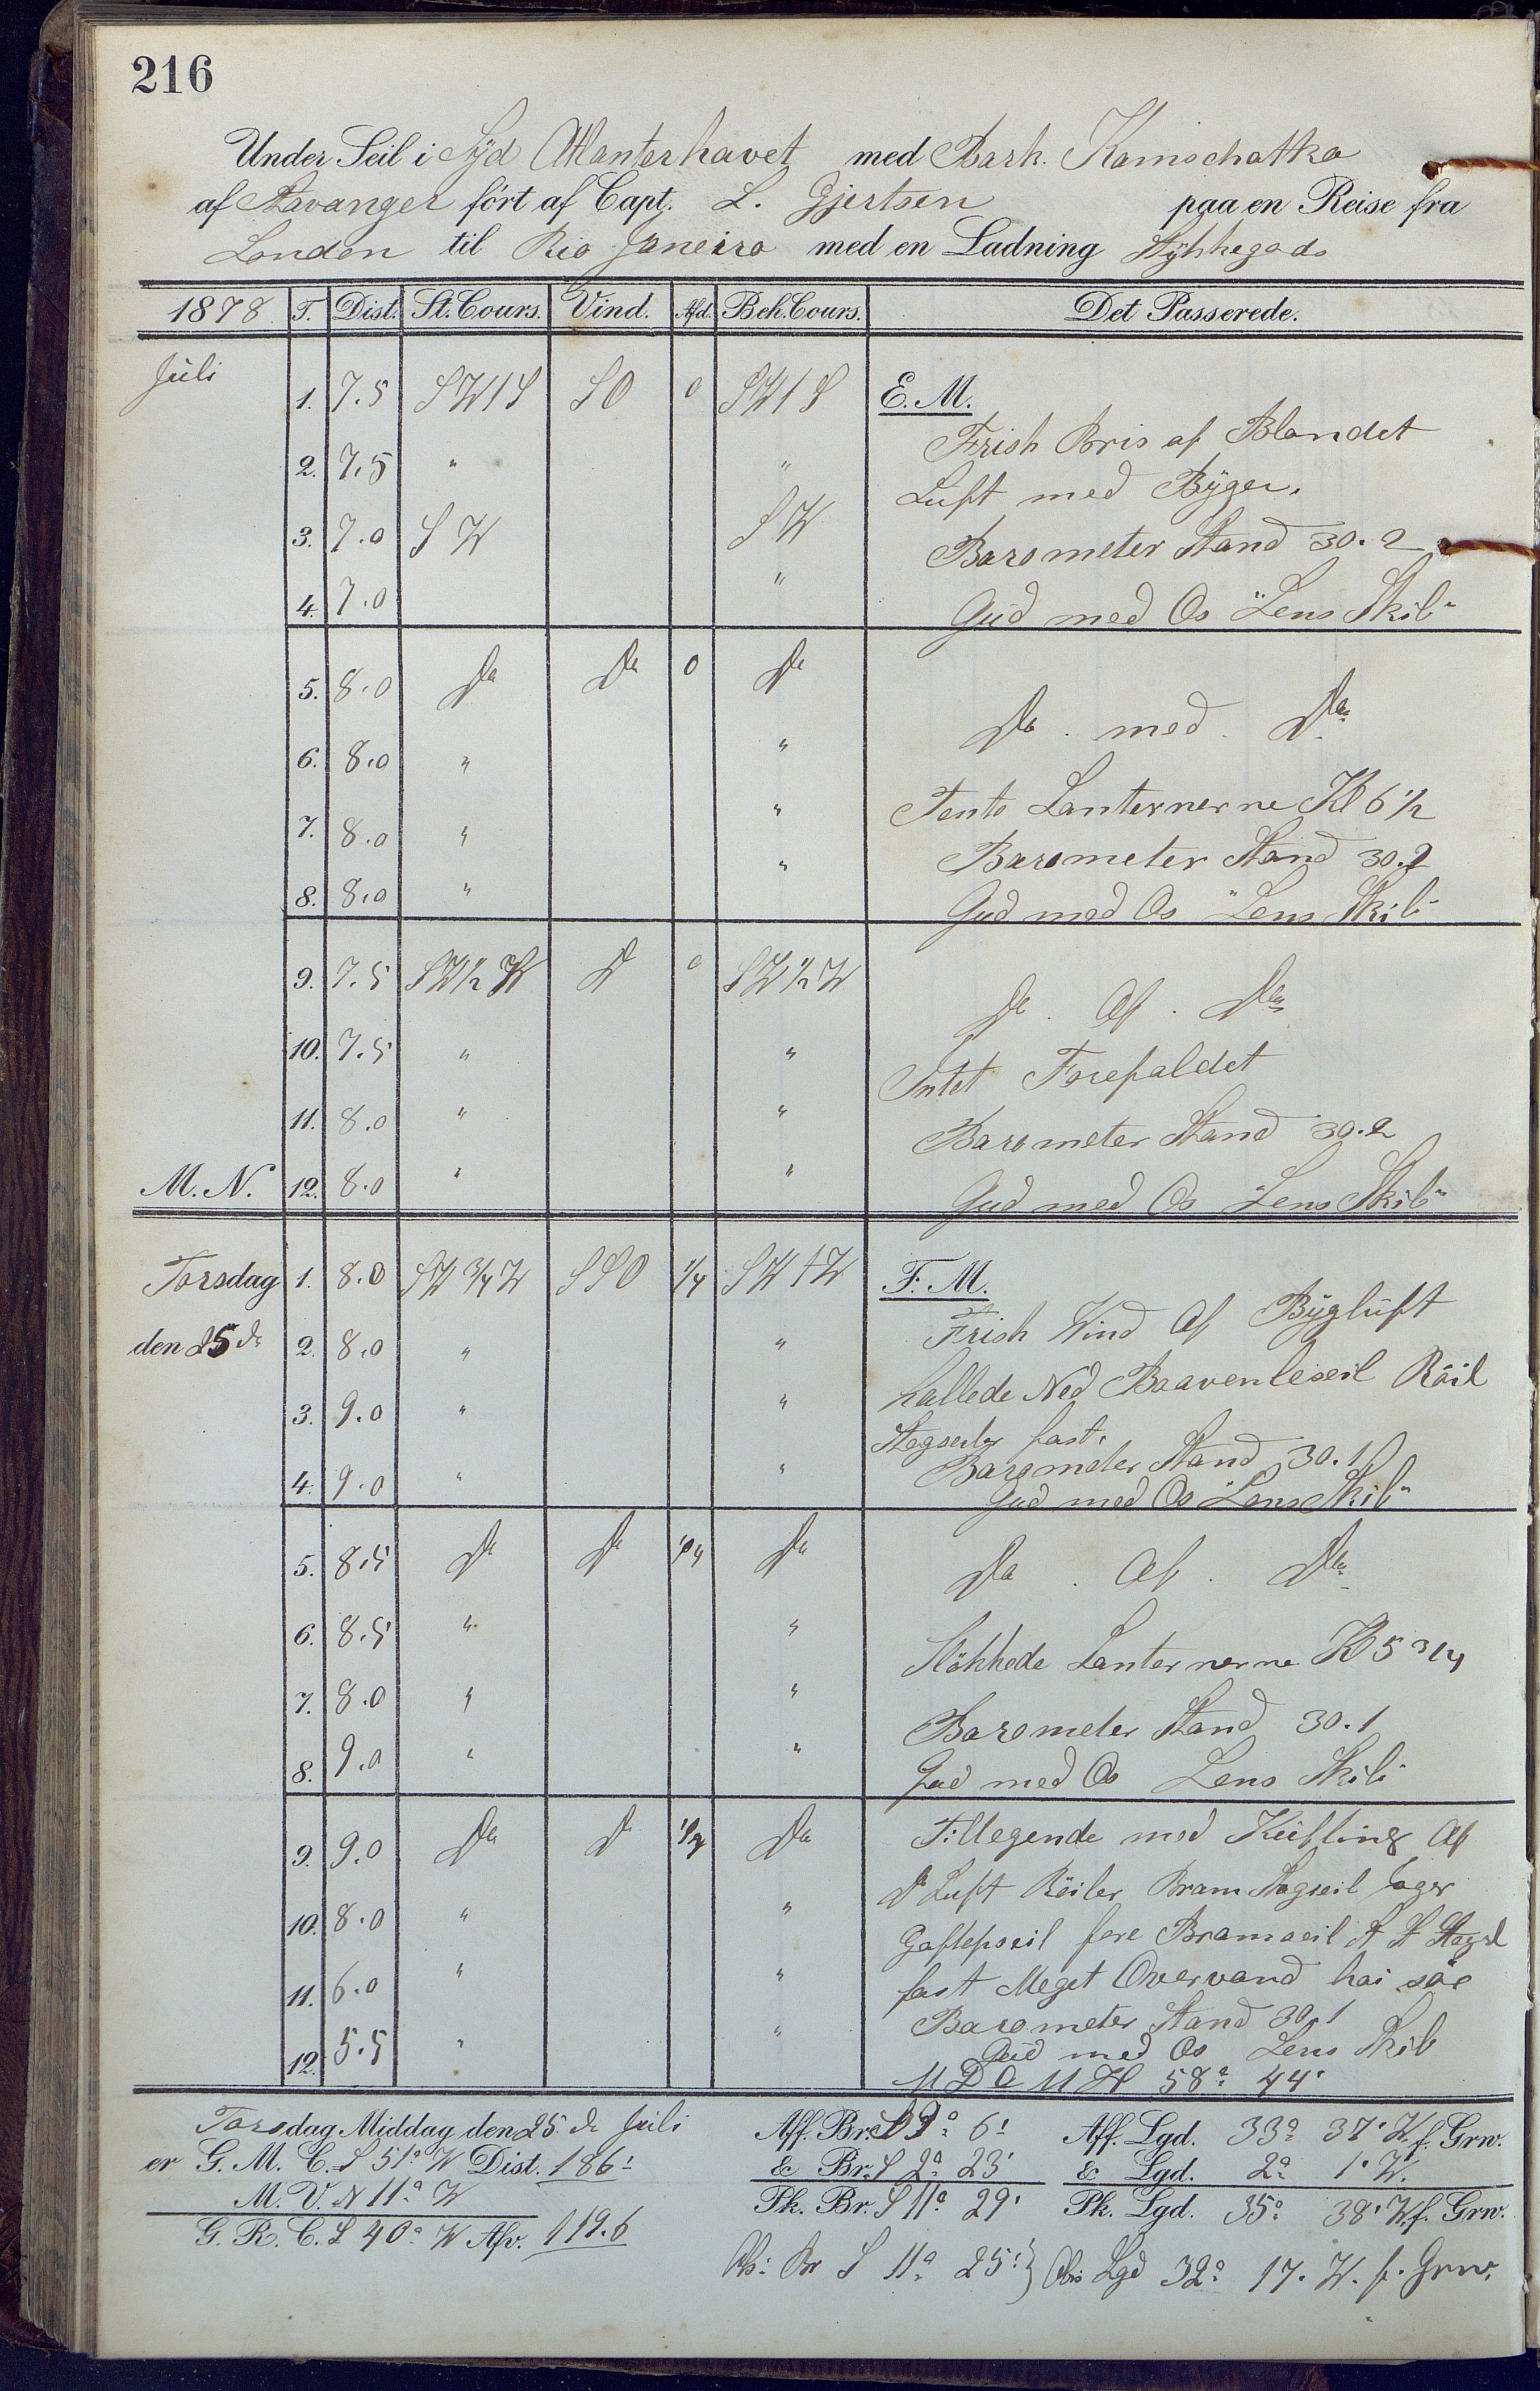 216
Under Seil i Syd Atlanterhavet med Bark. Kamschatka
af Stavanger ført af Capt. L. Gjertsen paa en Reise fra
London til Rio Janeiro med en Ladning Stÿkkegods
1878 T. Dist. St. Cours. Vind. Afd. Beh. Cours. Det Passerede.
Juli
1. 7.5 SW1S SO 0 SW1S E. M.
Frisk Bris af Blandet
2. 7.5 " " Luft med Bÿger.
3. 7.0 SW SW Barometer Stand 30.2
4. 7.0 " Gud med Os "Lens Skib"
5. 8.0 Do Do 0 Do
Do . med . Do
6. 8.0 " "
7. 8.0 " " Tente Lanternerne Kl 6 1/2
Barometer Stand 30.2
8. 8.0 " " Gud med Os "Lens Skib"
9. 7.5 SW 1/2 W Do 0 SW 1/2 W
Do . Af . Do
10. 7.5 " " Intet Forefaldet
11. 8.0 " " Barometer Stand 30.2
M. N. 12. 8.0 " " Gud med Os "Lens Skib"
Torsdag 1. 8.0 SW 3/4 W SSO 1/4 SW1W F. M.
Frisk Wind Af Bÿgluft
den 25 de 2. 8.0 " " hallede Ned Baavenleseil Röil
3. 9.0 " " Stagseiler fast.
Barometer Stand 30.1
4. 9.0 " " Gud med Os "Lens Skib"
5. 8.5 Do Do 1/4 Do Do . Af . Do
6. 8.5 " " Slökkede Lanternerne Kl 5 3/4
7. 8.0 " " Barometer Stand 30.1
8. 9.0 " " Gud med Os Lens Skib
9. 9.0 Do Do Do Tillegende med Kuhling Af
Do Luft Röiler Bram Stagseil Jager
10. 8.0 " " Gaftepseil fore Bramseil St St Stagsl
11. 6.0 " " fast Meget Overvand hai söe
Barometer Stand 30.1
12. 5.5 " " Gud med Os Lens Skib
58° 44'
Torsdag Middag den 25 de Juli Aff. Br. S 9° 6' Aff. Lgd. 33° 37' W. f. Grw.
er G. M. C. S 51° W Dist. 186' & Br. S 2° 23' & Lgd. 2° 1' W.
M. V. N 11° W Pk. Br. S 11° 29' Pk. Lgd. 35° 38' W. f. Grw.
G. R. C. S 40° W Afv. 119.6
Obs: Br S 11° 25' } Obs Lgd 32° 17. W. f. Grw.